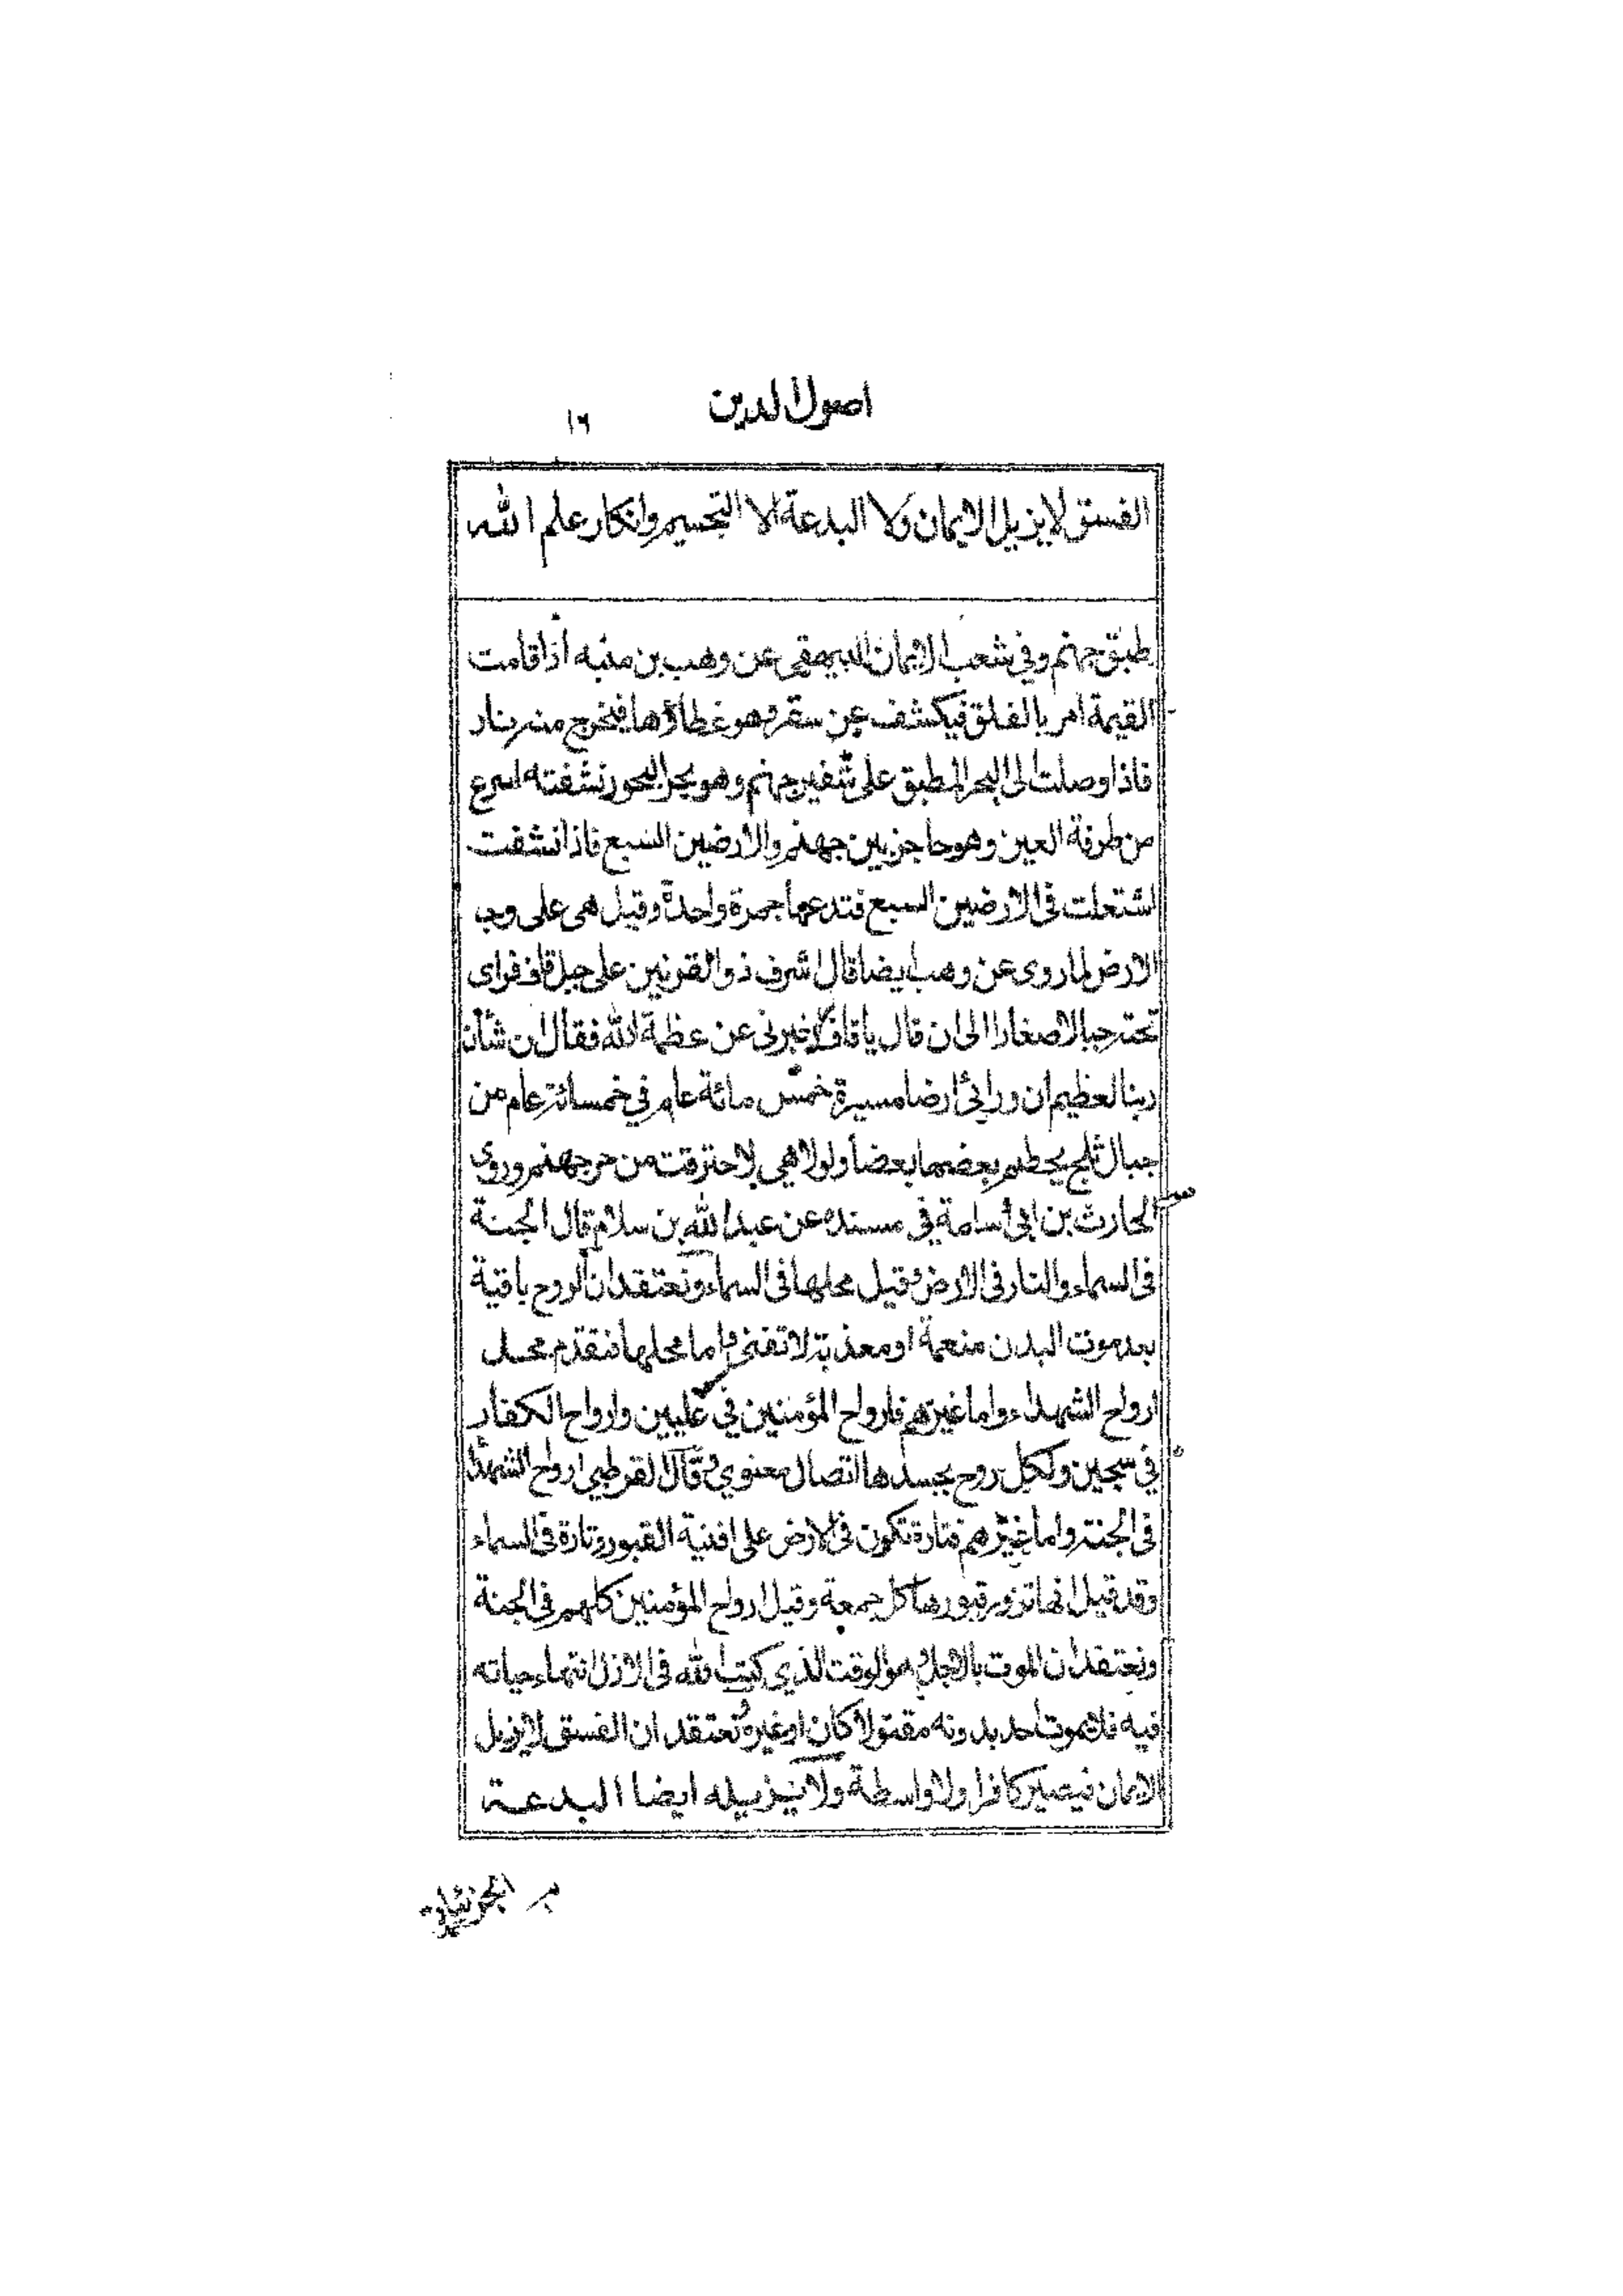 اصول الدين
١٦
الفسق لا يزيل الايمان ولا البدعة الا التجسيم وانكار علم الله
طبق جهنم وفي شعب الايمان للبيهقي عن وهب بن منبه اذا قامت
القيمة امر بالفلق فيكشف عن سقر وهو غطاؤها فيخرج منه نار
فاذا وصلت الى البحر المطبق على شفير جهنم وهو بحر البحور نشفته اسرع
من طرفة العين وهو حاجز بين جهنم والارضين السبع فاذا نشفت
اشتعلت في الارضين السبع فتدعها جمرة واحدة وقيل هي على وجه
الارض لما روى عن وهب ايضا قال اشرف ذو القرنين على جبل قاف فراى
تحته جبالا صغارا الى ان قال يا قاف اخبرنى عن عظمة الله فقال ان شأن
ربنا لعظيم ان ورائى ارضا مسيرة خمس مائة عام في خمسائة عام من
جبال ثلج يحطم بعضها بعضا ولولا هي لاحترقت من حر جهنم وروى
الحارث بن ابى أسامة في مسنده عن عبد الله بن سلام قال الجنة
فى السماء والنار فى الارض وقيل محلها فى السماء ونعتقد ان الروح باقية
بعد موت البدن منعمة او معذبة لا تفنى واما محلها فتقدم محل
ارواح الشهداء واما غيرهم فارواح المؤمنين في عليين وارواح الكفار
في سجين ولكل روح بجسدها اتصال معنوي وقال القرطبي ارواح الشهدا
فى الجنة واما غيرهم فتارة تكون فى الارض على افنية القبور وتارة فى السماء
وقد قيل انها تزور قبورها كل جمعة وقيل ارواح المؤمنين كلهم فى الجنة
ونعتقد ان الموت بالاجل وهو الوقت الذي كتب الله فى الازل انتهاء حياته
فيه فلا يموت احد بدونه مقتولا كان او غيره ونعتقد ان الفسق لا يزيل
الايمان فيصير كافرا ولا واسطة ولا يزيله ايضا البدعة